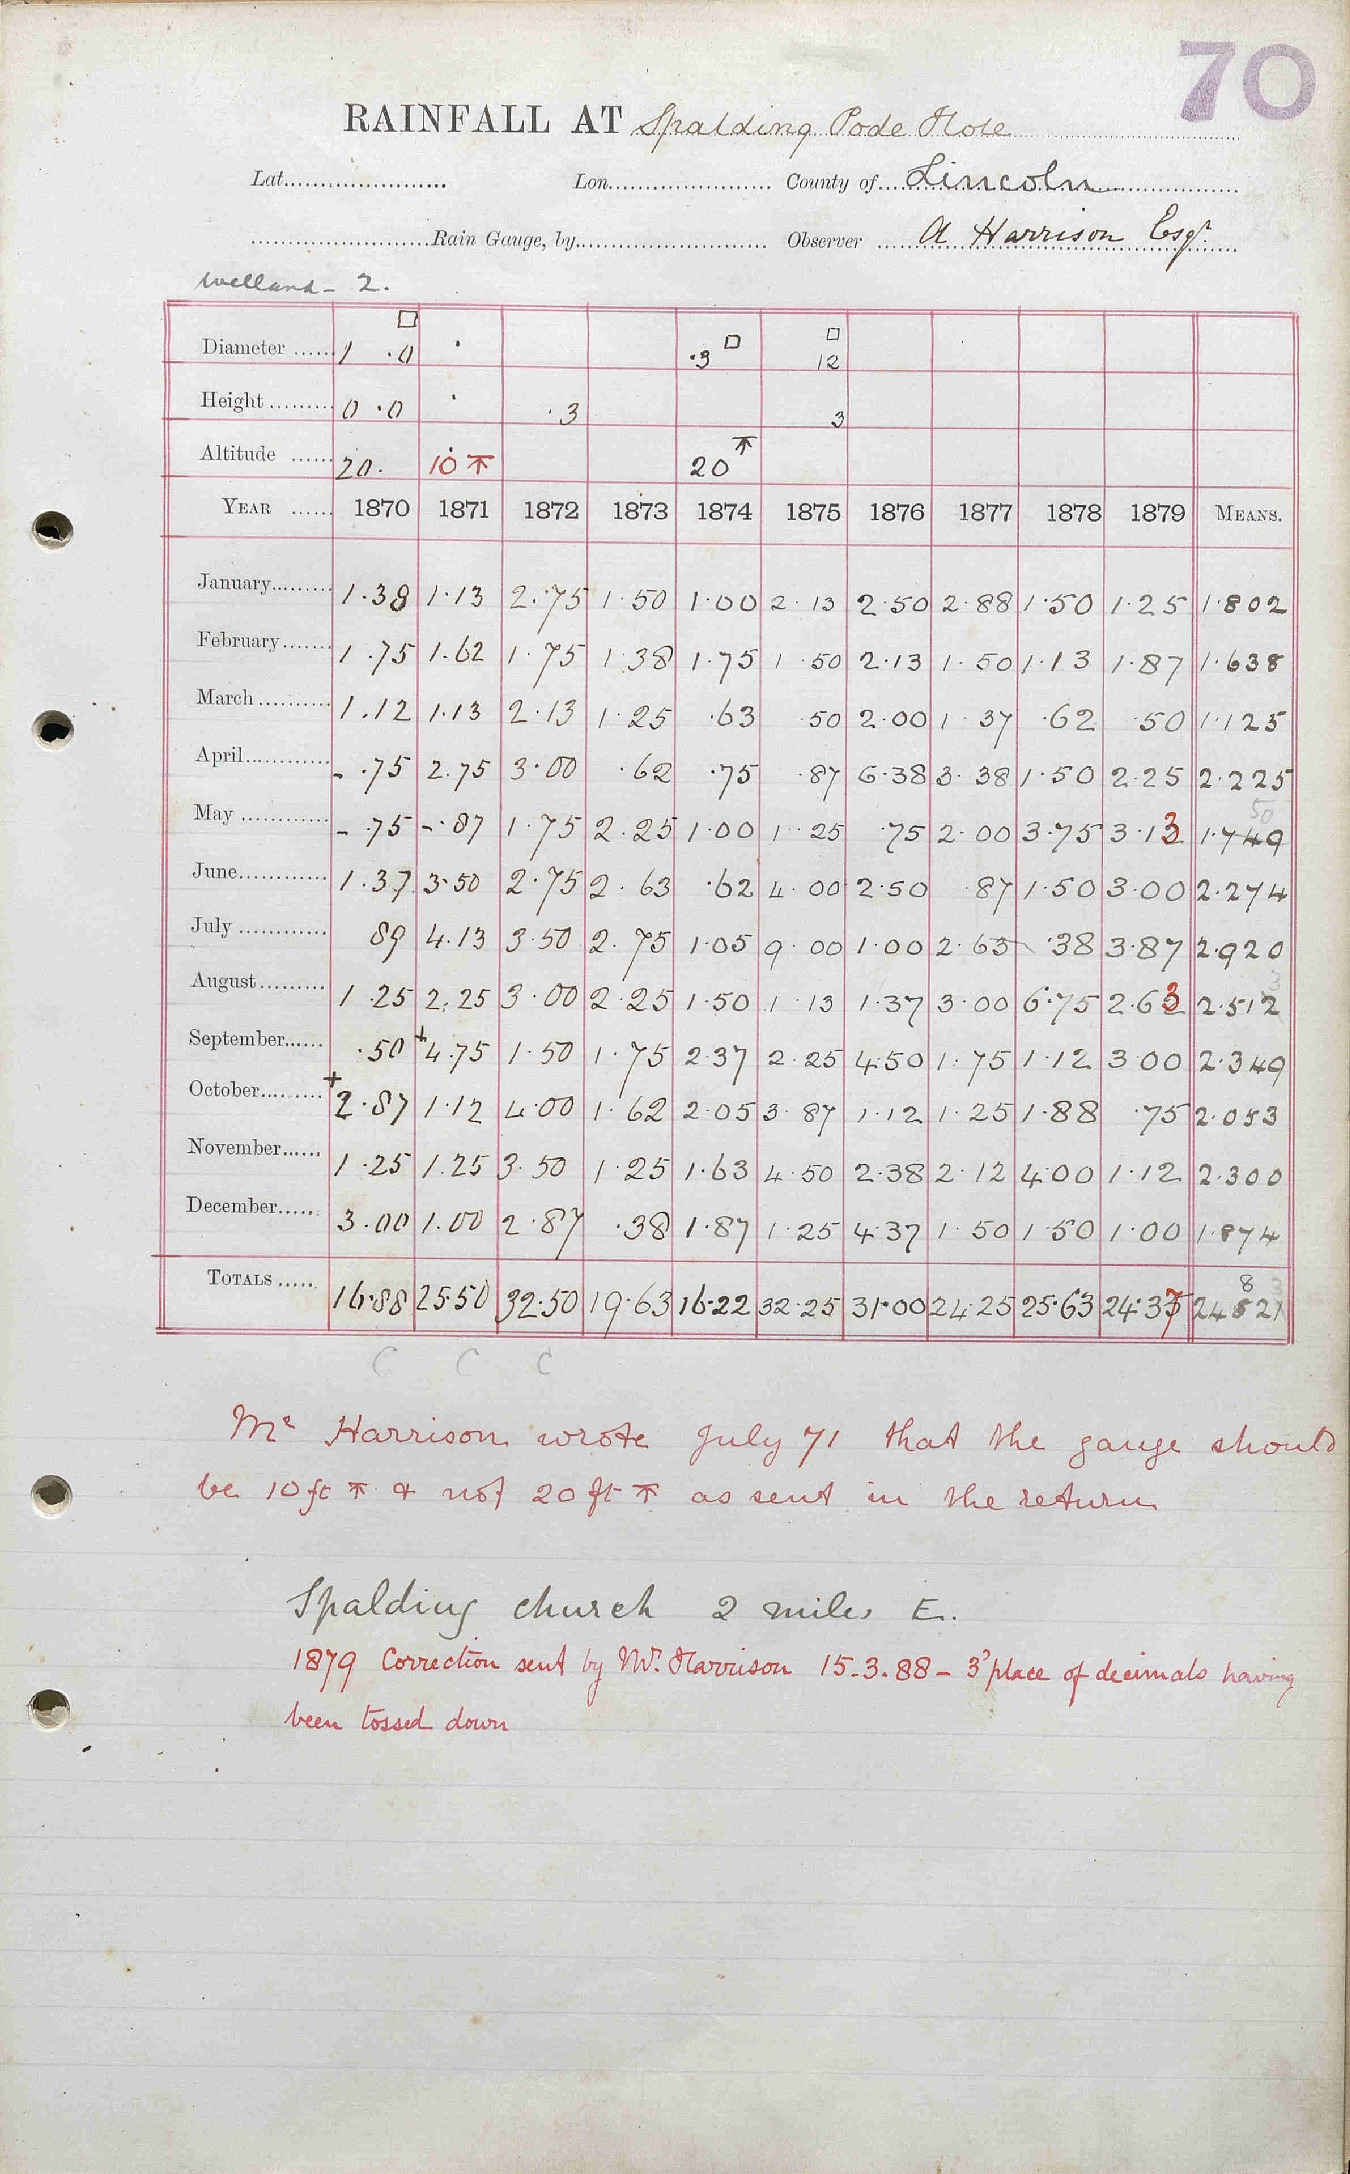 70
RAINFALL AT Spalding Pode Hole
Lat. Lon. County of Lincoln
Rain Gauge, by Observer A Harrison Esqr
Welland - 2.
Diameter 1 .0 □ · .3 □ □ 12
Height 0 .0 · .3 3
Altitude 20. 10 ⊼ 20 ⊼
YEAR 1870 1871 1872 1873 1874 1875 1876 1877 1878 1879 MEANS.
January 1.38 1.13 2.75 1.50 1.00 2.13 2.50 2.88 1.50 1.25 1.802
February 1.75 1.62 1.75 1.38 1.75 1.50 2.13 1.50 1.13 1.87 1.638
March 1.12 1.13 2.13 1.25 .63 .50 2.00 1.37 .62 .50 1.125
April - .75 2.75 3.00 .62 .75 .87 6.38 3.38 1.50 2.25 2.225
May - .75 - .87 1.75 2.25 1.00 1.25 .75 2.00 3.75 3.13 1.749 50
June 1.37 3.50 2.75 2.63 .62 4.00 2.50 .87 1.50 3.00 2.274
July 89 4.13 3.50 2.75 1.05 9.00 1.00 2.63 .38 3.87 2.920
August 1.25 2.25 3.00 2.25 1.50 1.13 1.37 3.00 6.75 2.63 2.512 3
September .50 +4.75 1.50 1.75 2.37 2.25 4.50 1.75 1.12 3.00 2.349
October +2.87 1.12 4.00 1.62 2.05 3.87 1.12 1.25 1.88 .75 2.053
November 1.25 1.25 3.50 1.25 1.63 4.50 2.38 2.12 4.00 1.12 2.300
December 3.00 1.00 2.87 .38 1.87 1.25 4.37 1.50 1.50 1.00 1.874
TOTALS 16.88 25.50 32.50 19.63 16.22 32.25 31.00 24.25 25.63 24.37 24.821
C C C
Mr Harrison wrote July 71 that the gauge should
be 10 ft ⊼ & not 20 ft ⊼ as sent in the return
Spalding church 2 miles E.
1879 Correction sent by Mr. Harrison 15.3.88 - 3d place of decimals having
been tossed down